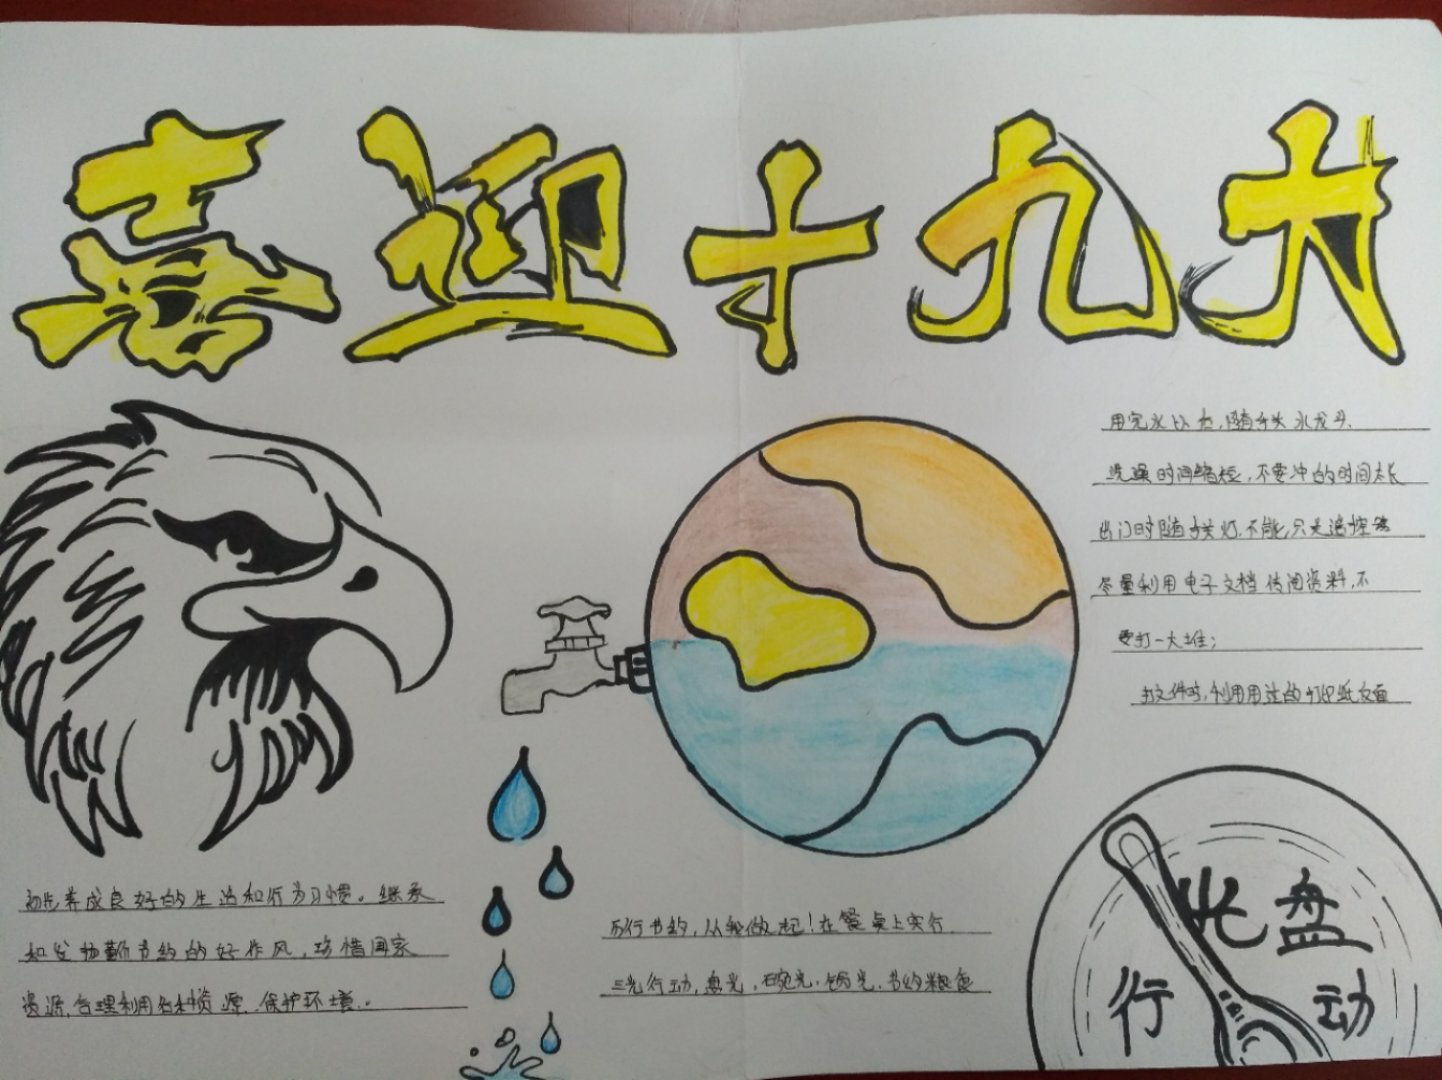 喜迎十九大
用完水以后，随手关水龙头.
洗澡时间缩短，不要冲的时间太长
出门时随手关灯.不能只关遥控器
尽量利用电子文档传阅资料，不
要打一大堆；
打文件时，利用用过的打印纸反面
初步养成良好的生活和行为习惯。继承
和发扬勤俭节约的好作风，珍惜国家
资源，合理利用各种资源.保护环境。
厉行节约，从我做起！在餐桌上实行
三光行动，盘光，碗光，锅光.节约粮食
光盘
行动